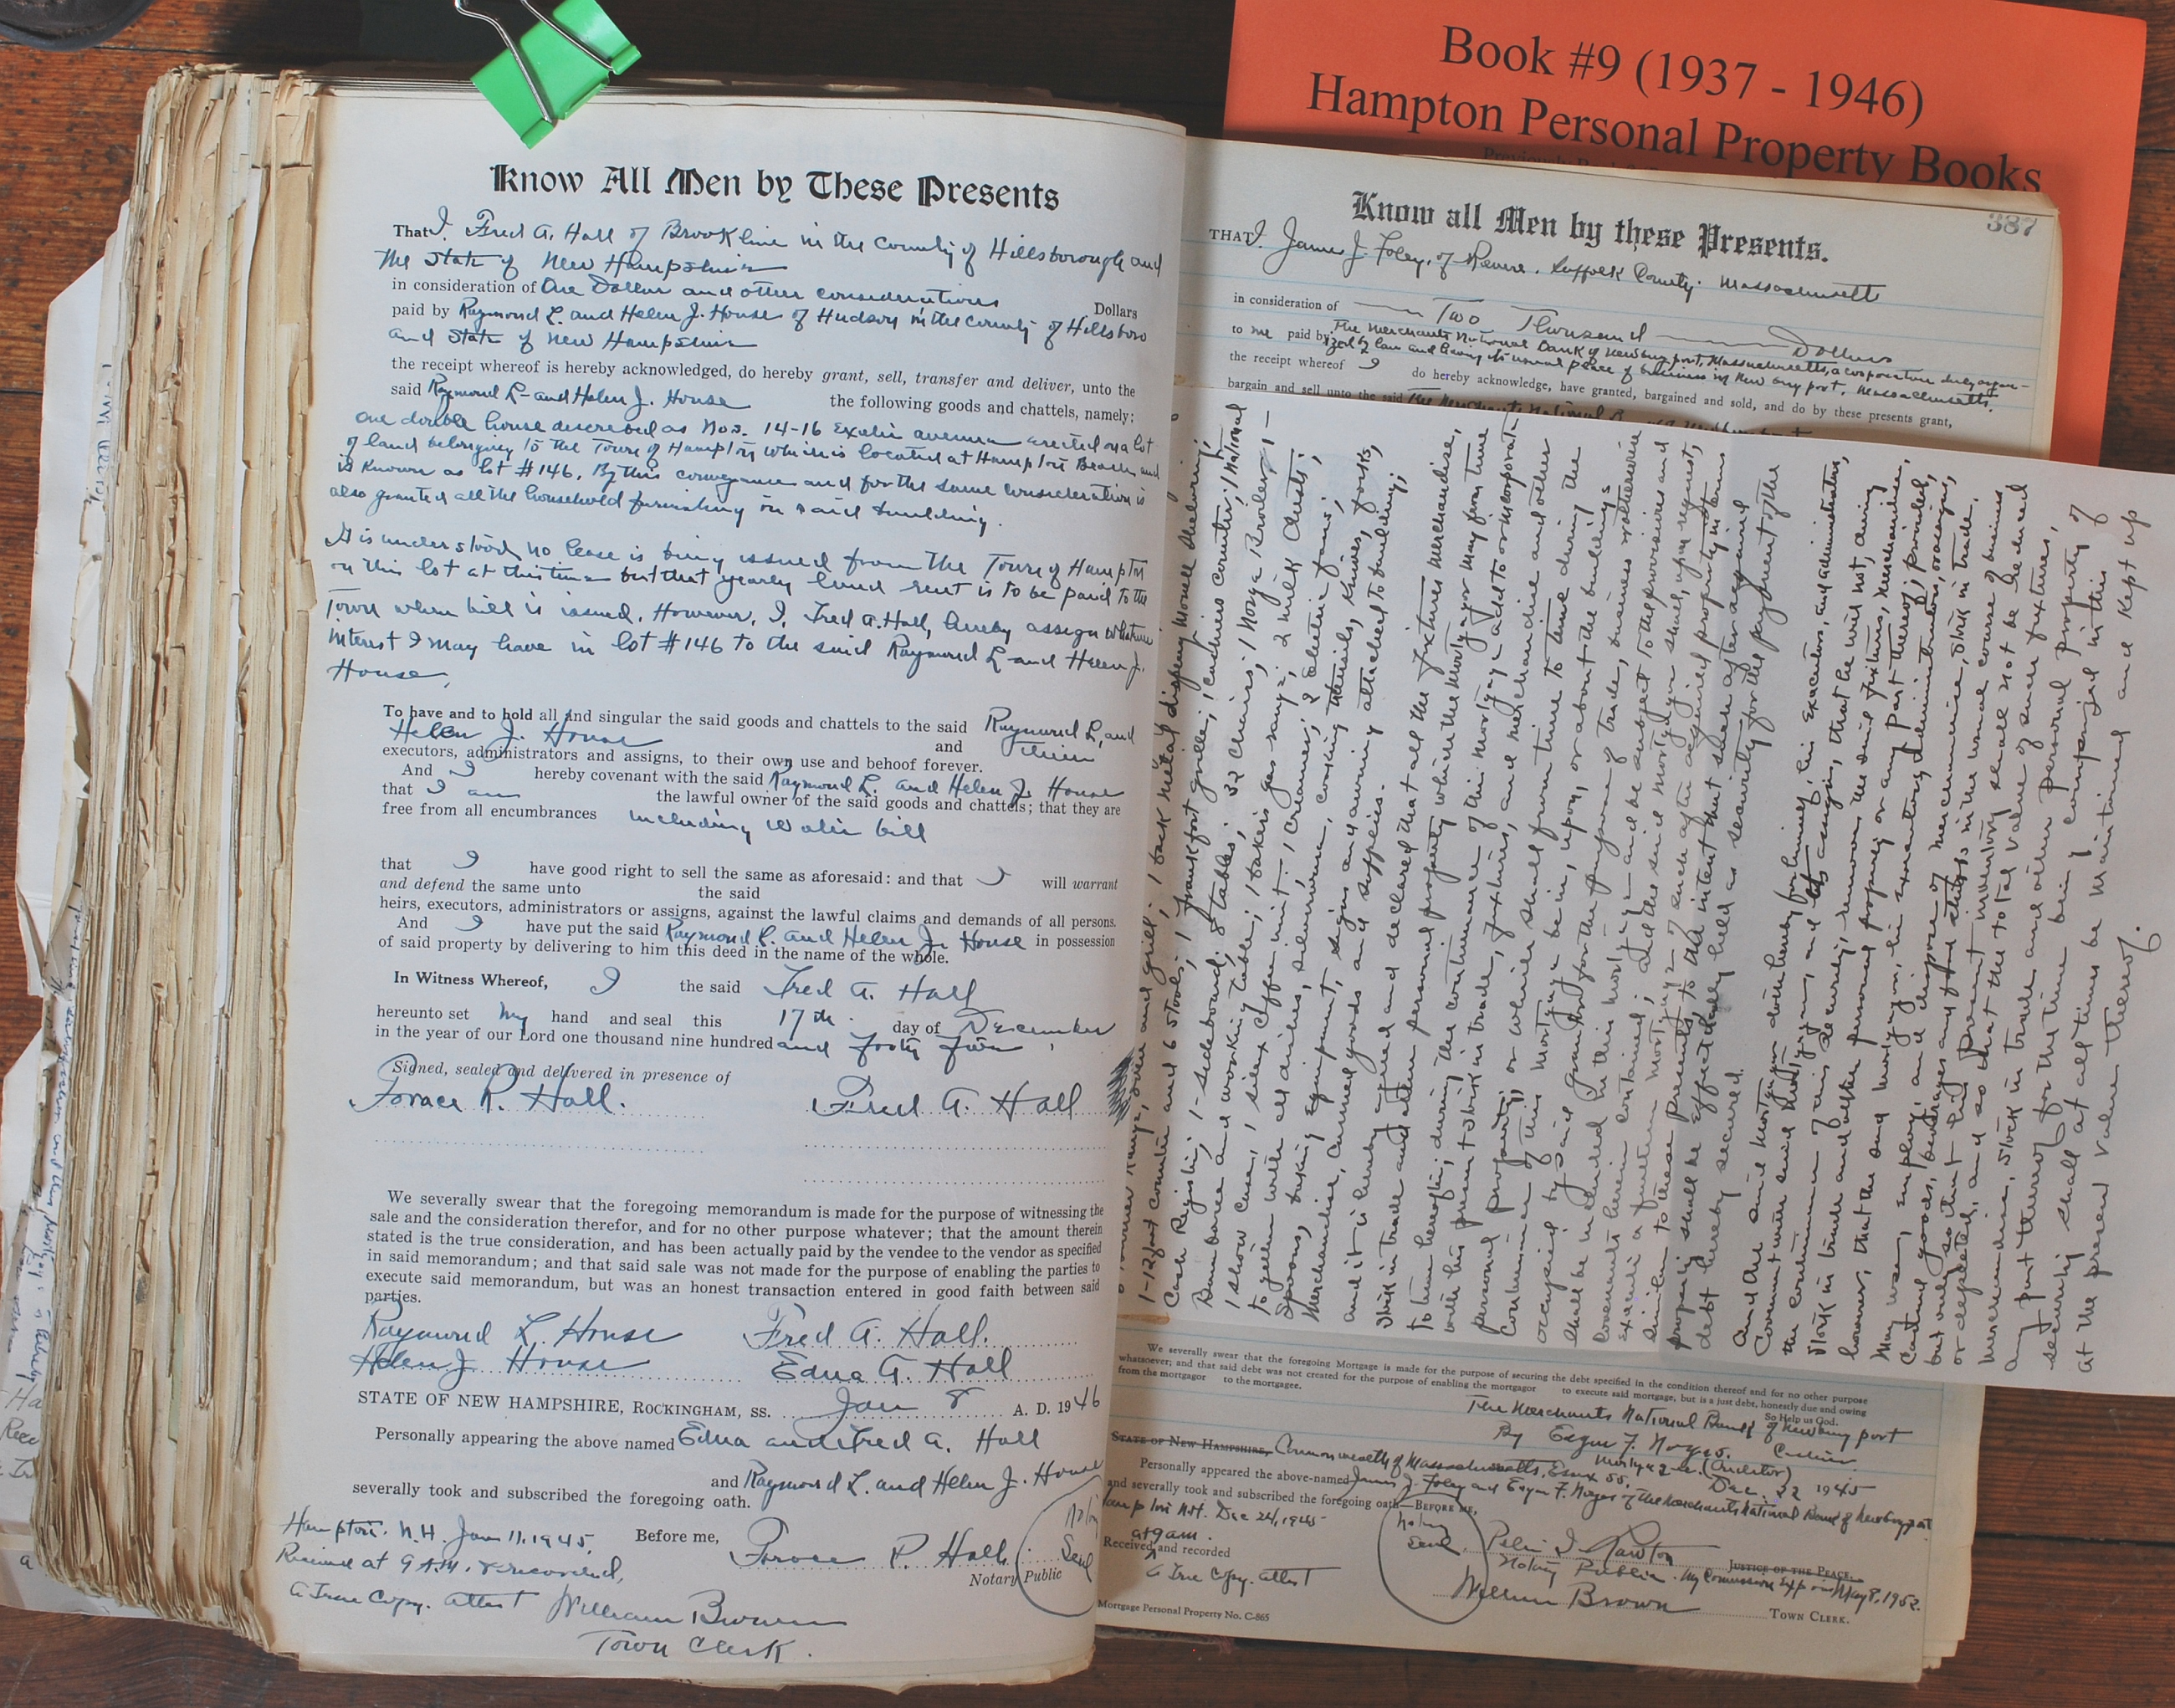 Book #9 (1937 - 1946)
Hampton Personal Property Books
Know All Men by These Presents
That I, Fred A. Hall of Brookline in the County of Hillsborough and
the State of New Hampshire
in consideration of One Dollar and other considerations Dollars
paid by Raymond L. and Helen J. House of Hudson in the County of Hillsboro
and State of New Hampshire
the receipt whereof is hereby acknowledged, do hereby grant, sell, transfer and deliver, unto the
said Raymond L. and Helen J. House the following goods and chattels, namely:
one double house described as Nos. 14-16 Exeter avenue erected on a lot
of land belonging to the Town of Hampton which is located at Hampton Beach and
is known as lot #146. By this conveyance and for the same consideration is
also granted all the household furnishing in said building.
It is understood no lease is being issued from the Town of Hampton
on this lot at this time but that yearly land rent is to be paid to the
Town when bill is issued. However, I, Fred A. Hall, hereby assign whatever
interest I may have in lot #146 to the said Raymond L. and Helen J.
House,
To have and to hold all and singular the said goods and chattels to the said Raymond L. and
Helen J. House and their
executors, administrators and assigns, to their own use and behoof forever.
And I hereby covenant with the said Raymond L. and Helen J. House
that I am the lawful owner of the said goods and chattels; that they are
free from all encumbrances including water bill
that I have good right to sell the same as aforesaid: and that I will warrant
and defend the same unto the said
heirs, executors, administrators or assigns, against the lawful claims and demands of all persons.
And I have put the said Raymond L. and Helen J. House in possession
of said property by delivering to him this deed in the name of the whole.
In Witness Whereof, I the said Fred A. Hall
hereunto set my hand and seal this 17th day of December
in the year of our Lord one thousand nine hundred and forty five
Signed, sealed and delivered in presence of
Horace R. Hall. Fred A. Hall
We severally swear that the foregoing memorandum is made for the purpose of witnessing the
sale and the consideration therefor, and for no other purpose whatever; that the amount therein
stated is the true consideration, and has been actually paid by the vendee to the vendor as specified
in said memorandum; and that said sale was not made for the purpose of enabling the parties to
execute said memorandum, but was an honest transaction entered in good faith between said
parties.
Raymond L. House Fred A. Hall.
Helen J. House Edna A. Hall
STATE OF NEW HAMPSHIRE, ROCKINGHAM, SS. Jan 8 A. D. 1946
Personally appearing the above named Edna and Fred A. Hall
and Raymond L. and Helen J. House
severally took and subscribed the foregoing oath.
Hampton. N.H. Jan 11, 1945. Before me, Horace R. Hall. Notary Seal
Received at 9 A.M. & recorded, Notary Public
A True Copy. Attest William Brown
Town Clerk.
387
Know all Men by these Presents.
THAT I, James J. Foley, of Revere, Suffolk County, Massachusetts
in consideration of Two Thousand Dollars
to me paid by The Merchants National Bank of Newburyport, Massachusetts, a corporation duly organ-
ized by law and having its usual place of business in Newburyport, Massachusetts.
the receipt whereof I do hereby acknowledge, have granted, bargained and sold, and do by these presents grant,
bargain and sell unto the said The Merchants National
Cash Register; 1-sideboard; 8 tables; 32 Chairs; 1 Norge Broiler; 1-
together with all dishes, silverware, cooking utensils, knives, forks,
Spoons, baking equipment, signs and awning attached to building;
Merchandise, canned goods and supplies.
And it is hereby agreed and declared that all the fixtures merchandise,
stock in trade and other personal property which the mortgagor may from time
to time hereafter, during the continuance of this mortgage add to or incorporate
with his present stock in trade, fixtures, and merchandise and other
personal property, or which shall from time to time during the
continuance of this mortgage be in, upon, or about the buildings
occupied by said Grantor for the purpose of trade, business or otherwise
shall be included in this mortgage and be subject to the provisions and
covenants herein contained; and the said mortgagor shall, upon request,
execute a further mortgage of such after acquired property in terms
similar to these presents, to the intent that such after acquired
property shall be effectually held as security for the payment of the
debt hereby secured.
And the said mortgagor doth hereby for himself, his executors, and administrators,
Covenant with said mortgagee, and its assigns, that he will not, during
the continuance of this security, remove the said fixtures, merchandise,
stock in trade and other personal property or any part thereof; provided,
however, that the said mortgagor, his executors, administrators, or assigns,
may use, employ, and dispose of merchandise, stock in trade,
canned goods, beverages and food stuffs in the usual course of business
but only so that his present inventory shall not be reduced
or depleted, and so that the total value of such fixtures,
merchandise, stock in trade and other personal property or
any part thereof for the time being comprised in this
security shall at all times be maintained and kept up
at the present value thereof.
We severally swear that the foregoing Mortgage is made for the purpose of securing the debt specified in the condition thereof and for no other purpose
whatsoever; and that said debt was not created for the purpose of enabling the mortgagor to execute said mortgage, but is a just debt, honestly due and owing
from the mortgagor to the mortgagee. So Help us God.
The Merchants National Bank of Newburyport
By Esgar F. Noyes. Cashier.
Mortgagee (Creditor)
STATE OF NEW HAMPSHIRE, Commonwealth of Massachusetts, Essex SS. Dec. 22 1945
Personally appeared the above-named James J. Foley and Esgar F. Noyes of the Merchants National Bank of Newburyport
and severally took and subscribed the foregoing oath—BEFORE ME,
Hampton N.H. Dec 24, 1945
at 9 am. Notary Seal
Received and recorded JUSTICE OF THE PEACE.
Notary Public. My Commission Expires May 8, 1952.
A True Copy. Attest William Brown TOWN CLERK.
Mortgage Personal Property No. C-865